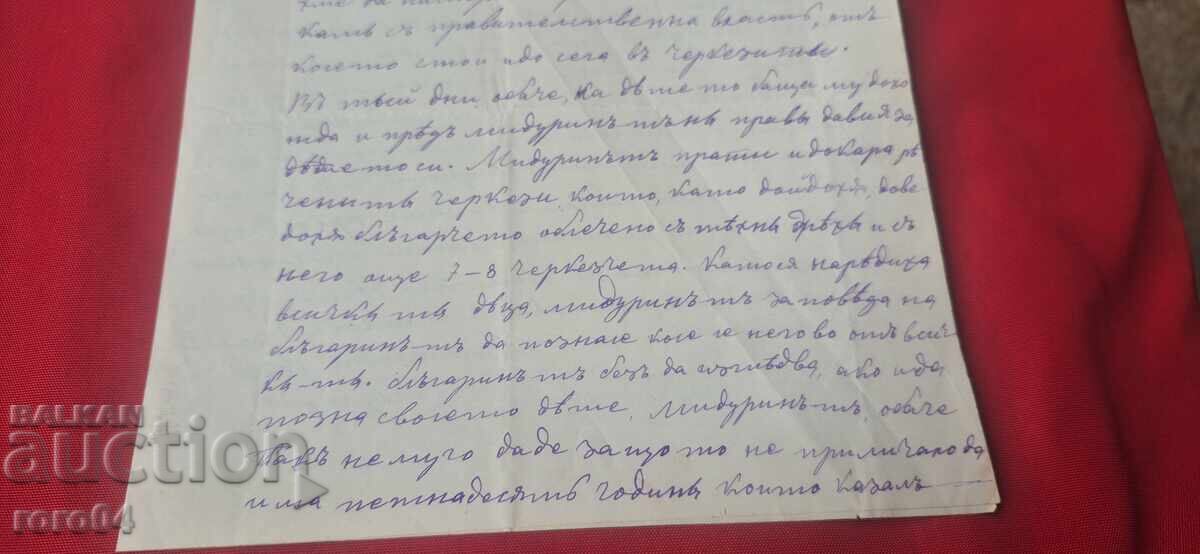 камъ съ правителственна власть, отъ
което стои и до сега въ черкезитѣ.
Въ тѣй дни обаче, на дѣтето баща му дохо
жда и прѣдъ мидуринътъ ни прави давия за
дѣтето си. Мидуринътъ прати и докара рѣ
ченитѣ черкези, които, като дойдохѫ, дове
дохѫ българчето облечено съ тѣхни дрѣхи и съ
него още 7-8 черкезчета. Като ся нарѣдихѫ
всички тѣ дѣца, мидуринътъ заповѣда на
българинътъ да познае кое е негово отъ всич
ки-тѣ. Българинътъ безъ да изглѣдва, ако и да
позна своето дѣте, мидуринътъ, обаче
пакъ не му го даде защото не приличало да
има петнадесятъ години, които казалъ
BALKAN
auction
roro64